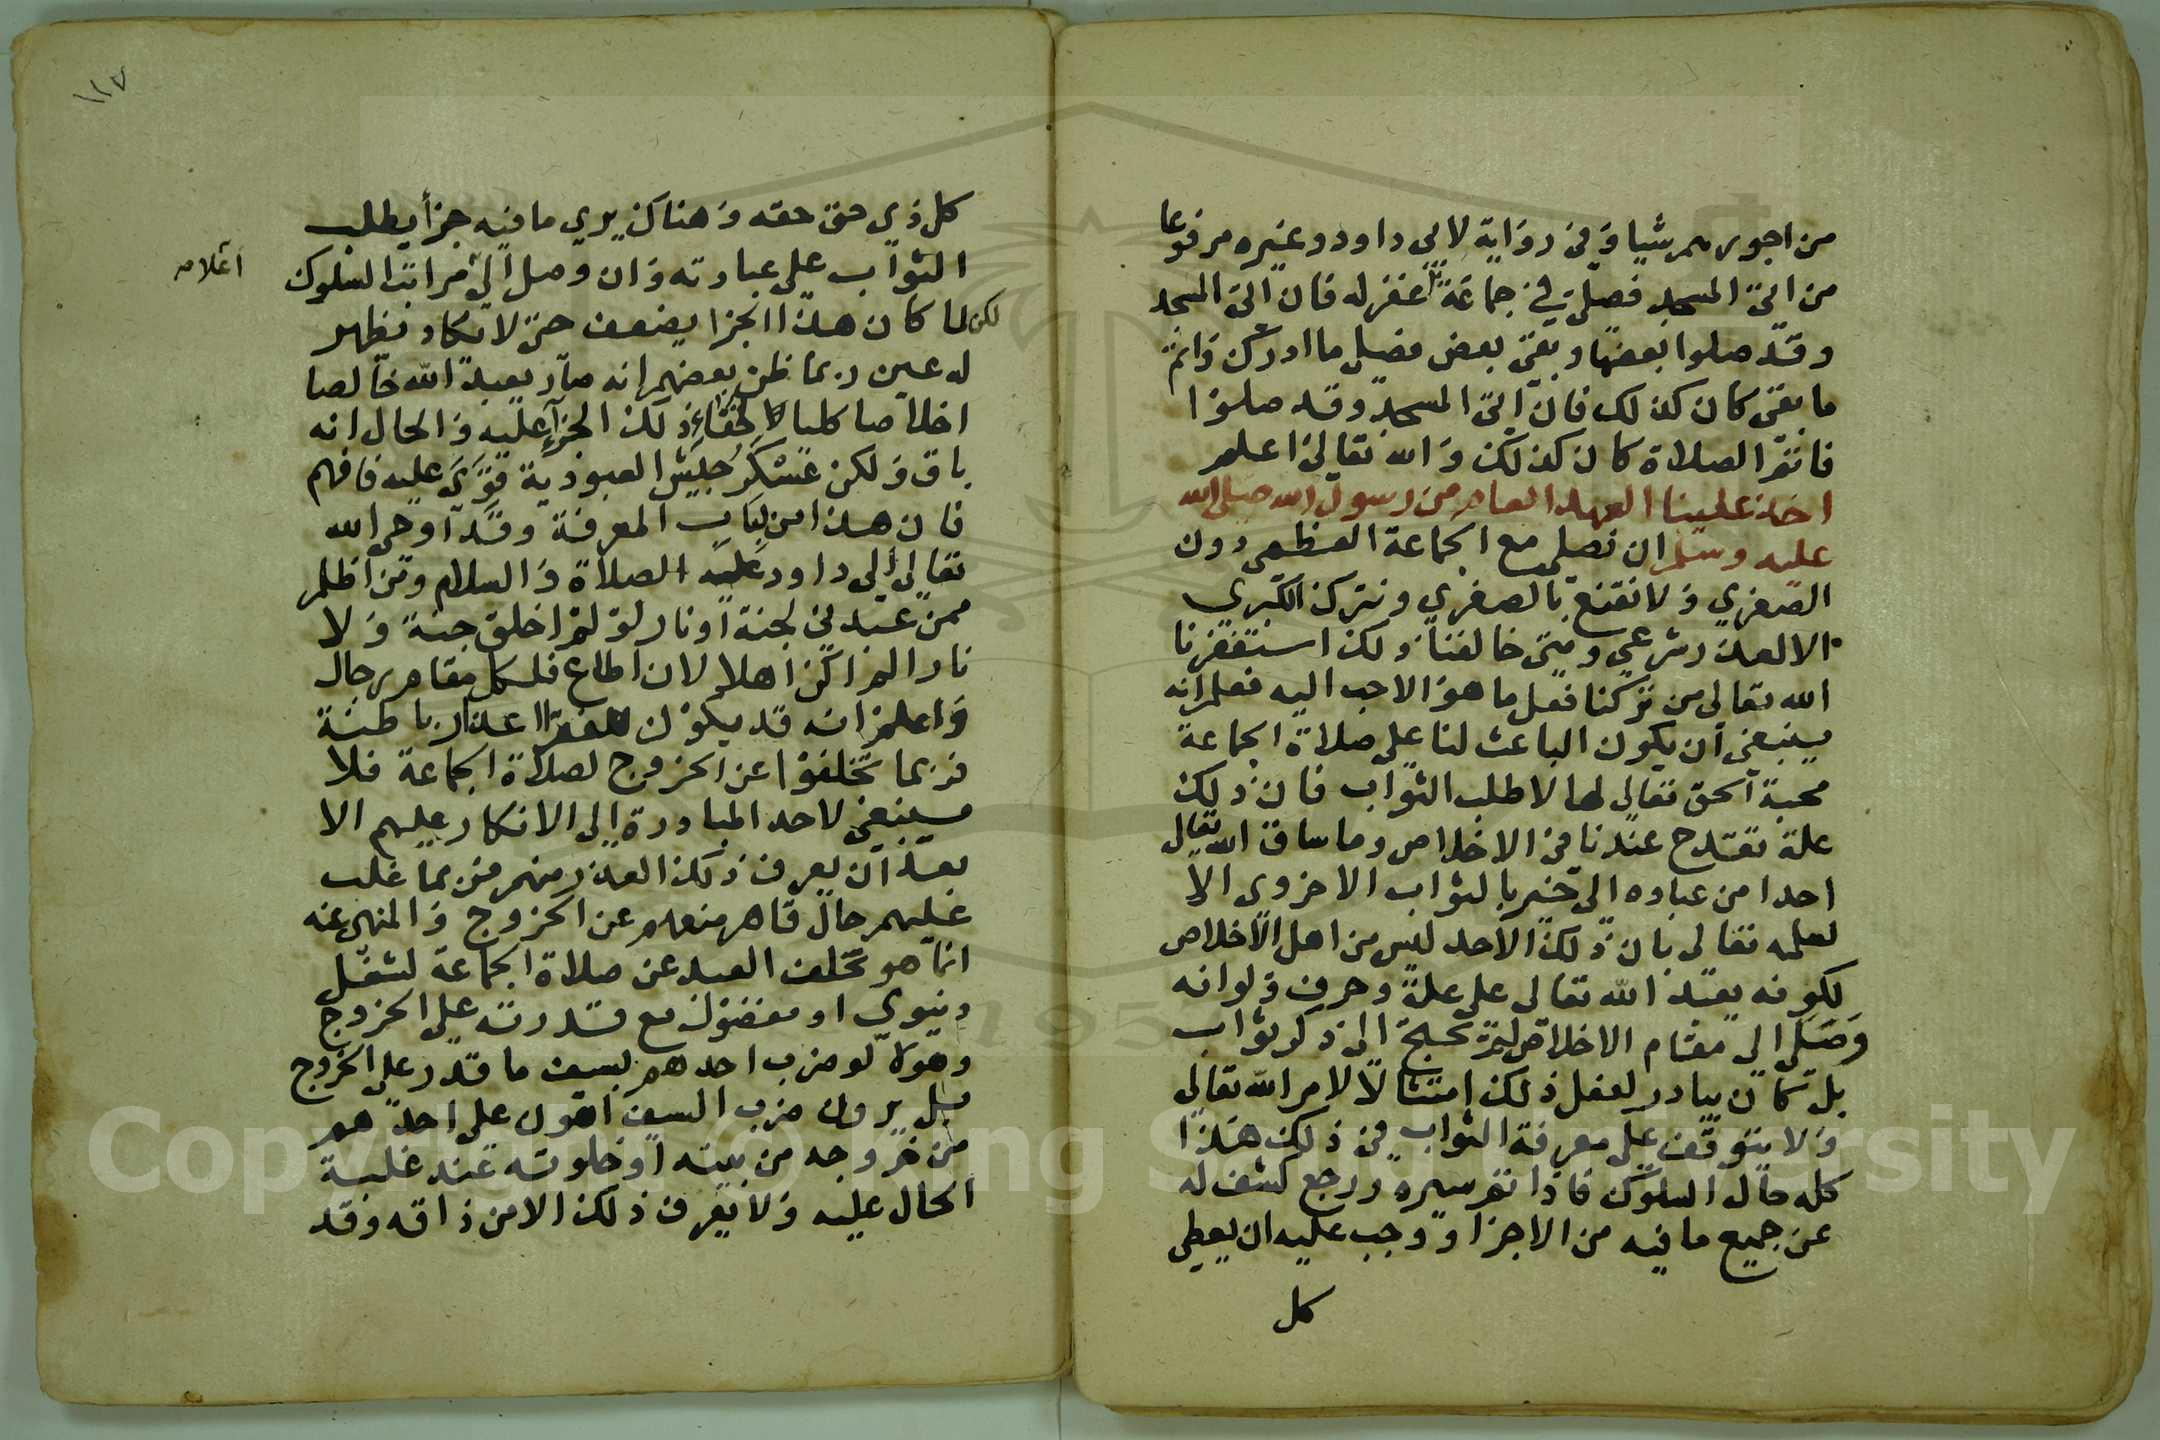 من اجورهم شيا وفي رواية لابي داود وغيره مرفوعا
من اتى المسجد فصلى في جماعة غفر له فان اتى المسجد
وقد صلوا بعضها وبقى بعض فصلى ما ادرك واتم
ما بقى كان كذلك فان اتى المسجد وقد صلوا
فاتم الصلاة كان كذلك والله تعالى اعلم
اخذ علينا العهد العام من رسول الله صلى الله
عليه وسلم ان نصلي مع الجماعة العظمى دون
الصغري ولا نقنع بالصغري ونترك الكبري
الا لعذر شرعي ومتى خالفنا ذلك استغفرنا
الله تعالى من تركنا فعل ما هو الاحب اليه فعلم انه
ينبغي ان يكون الباعث لنا على صلاة الجماعة
محبة الحق تعالى لها لا طلب الثواب فان ذلك
علة تقدح عندنا في الاخلاص وما ساق الله تعالى
احدا من عباده الى خير بالثواب الاخروي الا
لعلمه تعالى بان ذلك الاحد ليس من اهل الاخلاص
لكونه يعبد الله تعالى على علة وحرف ولو انه
وصل الى مقام الاخلاص لم يحتج الى ذكر ثواب
بل كان يبادر لفعل ذلك امتثالا لامر الله تعالى
ولا يتوقف على معرفة الثواب في ذلك هذا
كله حال السلوك فاذا تم سيره ورجع كشف له
عن جميع ما فيه من الاجزا ووجب عليه ان يعطي
كل
١١٧
كل ذي حق حقه وهناك يري ما فيه جزأ يطلب
الثواب على عبادته وان وصل الى مراتب السلوك
اعلامه
لكن لما كان هذا الجزا يضعف حتى لا تكاد تظهر
له عين ربما ظن بعضهم انه صار يعبد الله خالصا
اخلاصا كليا لا لخفاء ذلك الجزء عليه والحال انه
باق ولكن عسكر جيش العبودية قوى عليه فافهم
فان هذا من لباب المعرفة وقد اوحى الله
تعالى الى داود عليه الصلاة والسلام ومن اظلم
ممن عبدني لجنة او نار لو لم اخلق جنة ولا
نارا لم اكن اهلا لان اطاع فلكل مقام رجال
واعلم انه قد يكون للفقرا اعذار باطنة
فربما تخلفوا عن الخروج لصلاة الجماعة فلا
ينبغي لاحد المبادرة الى الانكار عليهم الا
بعد ان يعرف ذلك العذر منهم فربما غلب
عليهم حال قاهر منعهم عن الخروج والمنهى عنه
انما هو تخلف العبد عن صلاة الجماعة لشغل
دنيوي او مفضول مع قدرته على الخروج
وهولا لو ضرب احدهم بسيف ما قدر على الخروج
بل يرون ضرب السيف اهون على احدهم
من خروجه من بيته او خلوته عند غلبة
الحال عليه ولا يعرف ذلك الا من ذاقه وقد
Copyright © King Saud University
1957